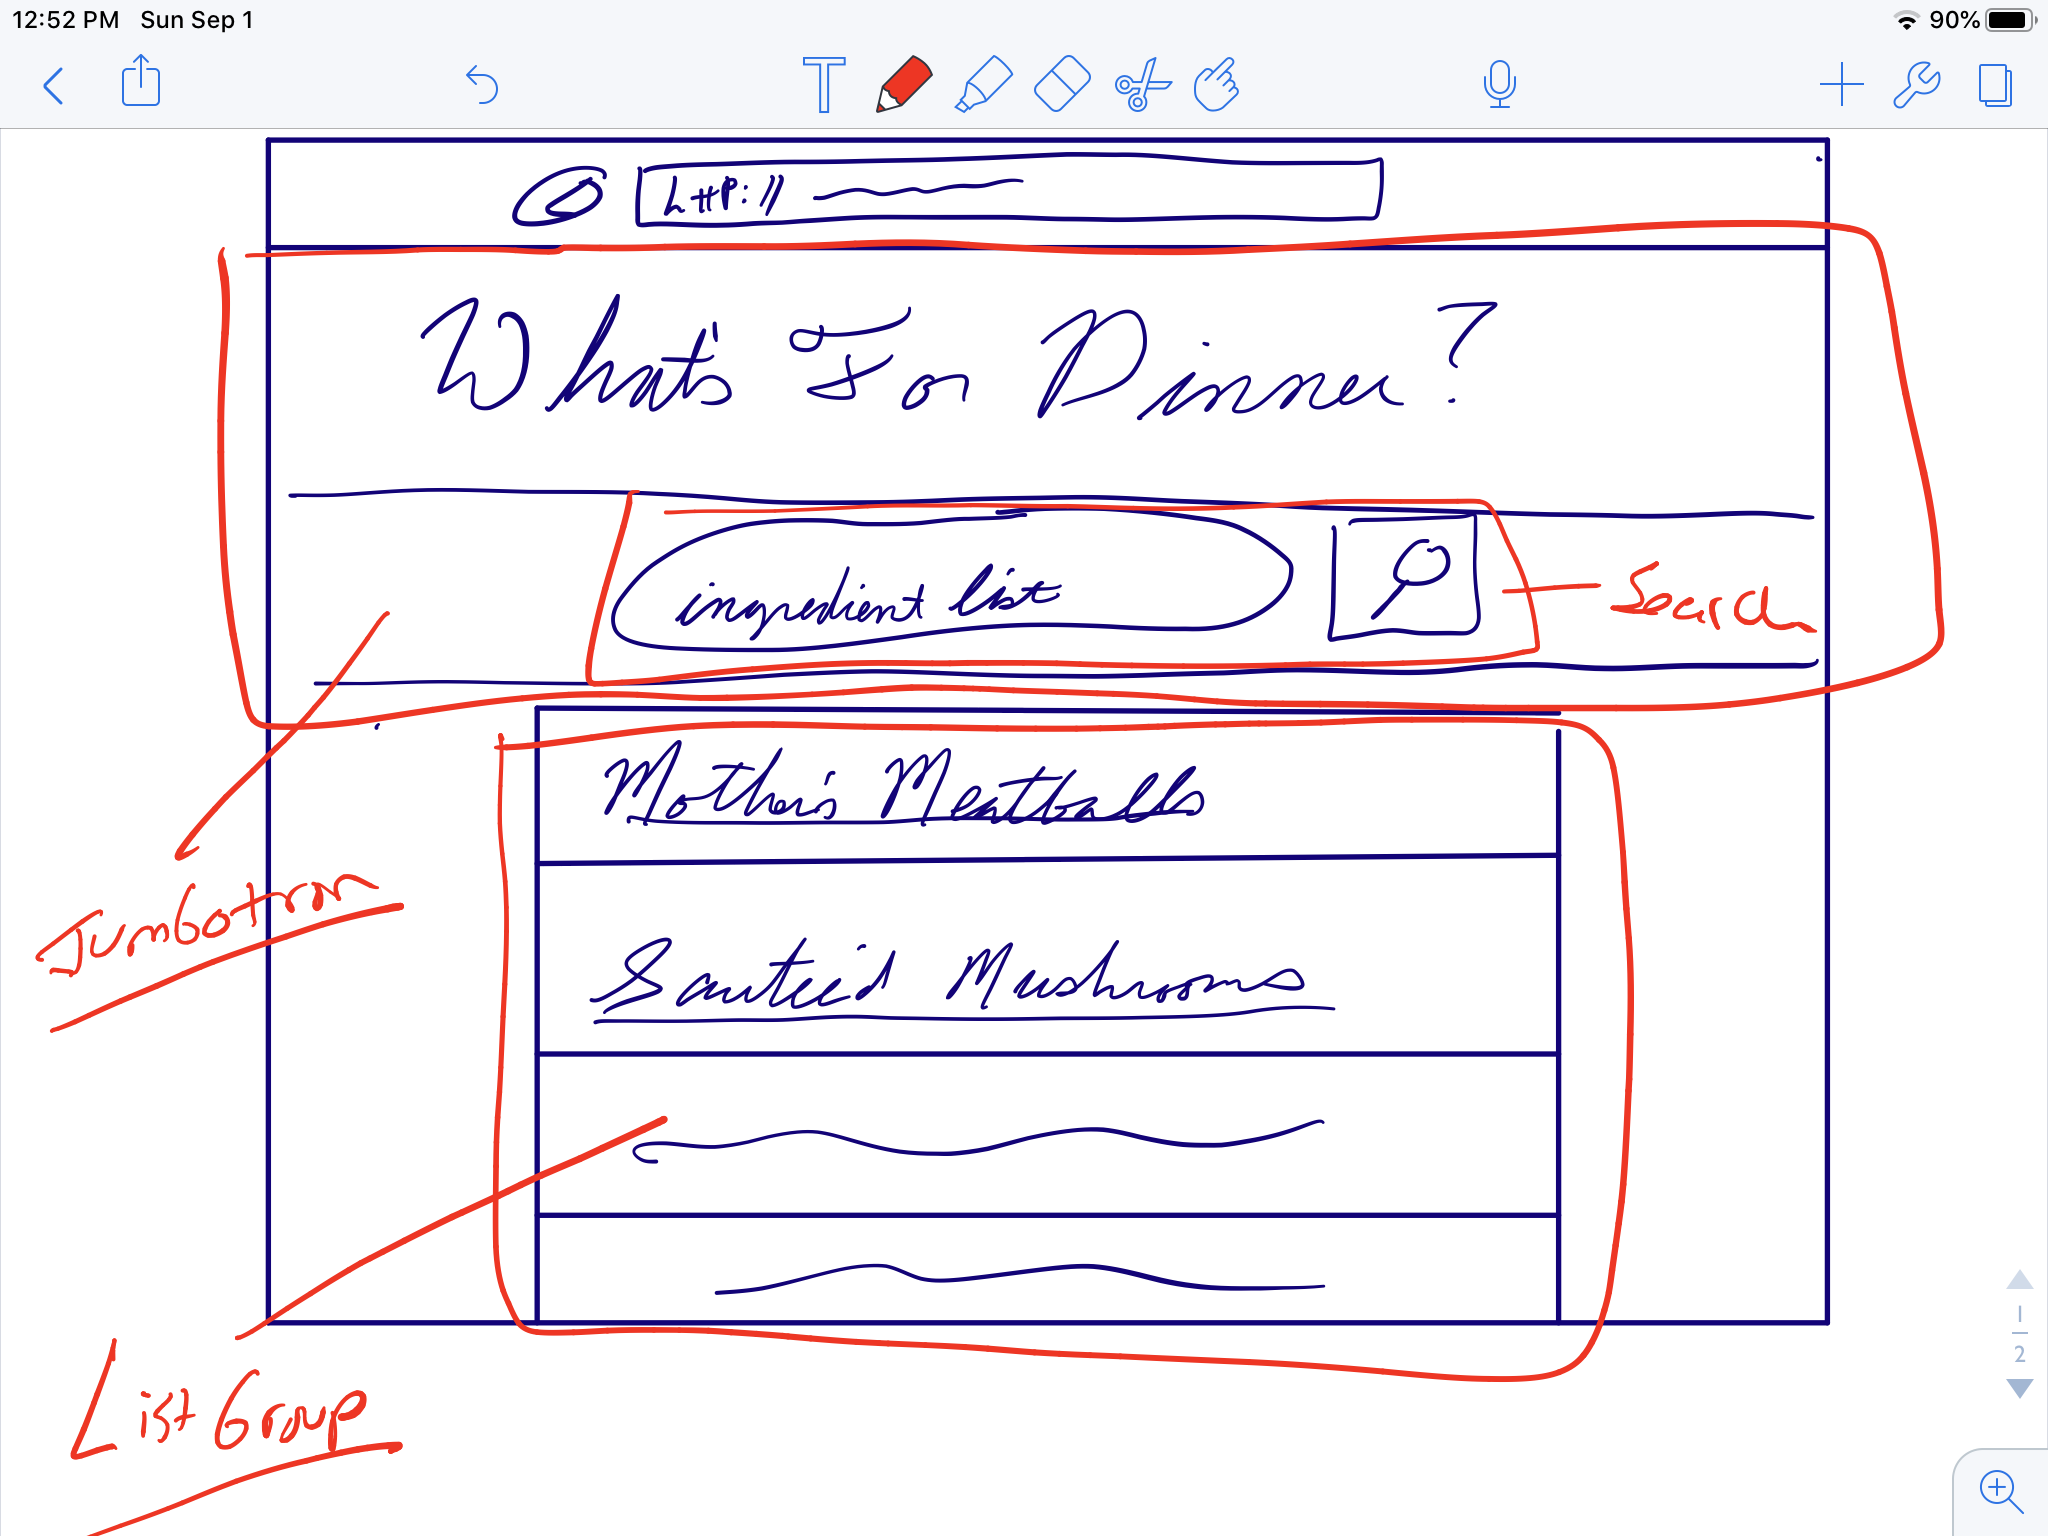 12:52 PM Sun Sep 1
90%
http://
What's For Dinner?
ingredient list
Search
Mother's Meatballs
Jumbotron
Sauteed Mushrooms
List Group
1
2